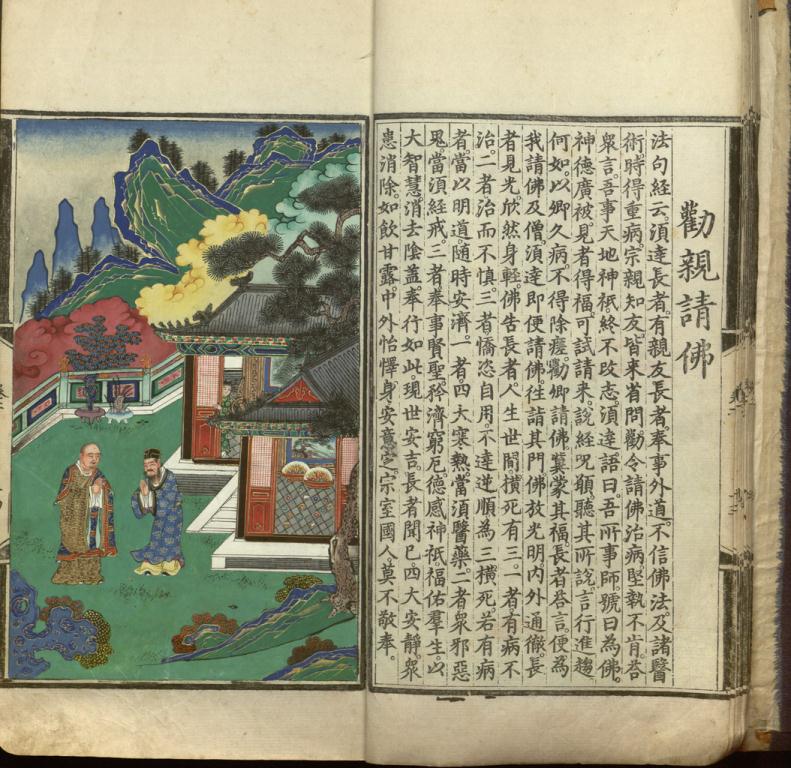 勸親請佛
法句經云。須達長者。有親友長者。奉事外道。不信佛法。及諸醫
術。時得重病。宗親知友。皆來省問。勸令請佛治病。堅執不肯。荅
衆言。吾事天地神祇。終不改志。須達語曰。吾所事師。號曰為佛。
神德廣被。見者得福。可試請來。說經呪願。聽其所說。言行進趨。
何如。以卿久病。不得除瘥。勸卿請佛。冀蒙其福。長者荅言。便為
我請佛及僧。須達即便請佛。往詣其門。佛放光明。內外通徹。長
者見光。欣然身輕。佛告長者。人生世間。橫死有三。一者有病不
治。二者治而不慎。三者憍恣自用。不達逆順。為三橫死。若有病
者。當以明道。隨時安濟。一者。四大寒熱。當須醫藥。二者。衆邪惡
鬼。當須經戒。三者奉事賢聖。矜濟窮厄。德感神祇。福佑羣生。以
大智慧。消去陰蓋。奉行如此。現世安吉。長者聞已。四大安靜。衆
患消除。如飲甘露。中外怡懌。身安意定。宗室國人。莫不敬奉。